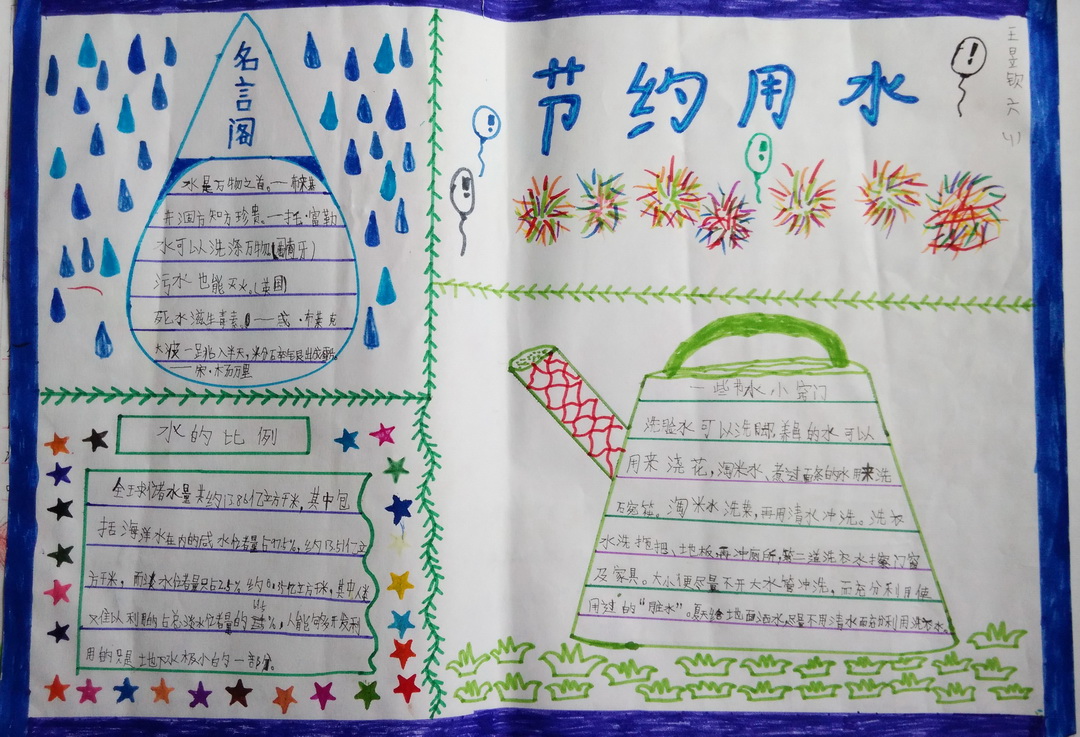 名言阁
水是万物之首。——布莱基
井涸方知方珍贵。——托·富勒
水可以洗涤万物(葡萄牙)
污水也能灭火。(英国)
死水滋生毒素。——英·布莱克
宋·杨万里
节约用水
王昱钦 六(1)
水的比例
全球储水量共约13.86亿立方千米,其中包
括海洋水在内的咸水储量占97.5%,约13.51亿立
方千米,而淡水储量只占2.5% 约0.35亿立方千米,其中人类
又难以利用的占总淡水储量的 %,人能够开发利
用的只是地下水极小的一部分
一些节水小窍门
洗脸水可以洗脚,养鱼的水可以
用来浇花,淘米水、煮过面条的水用来洗
碗筷。淘米水洗菜,再用清水冲洗。洗衣
水洗拖把、地板,再冲厕所,第二道洗衣水擦门窗
及家具。大小便尽量不开大水管冲洗。而充分利用使
用过的“脏水”。夏天给地面洒水,尽量不用清水而充分利用洗衣水。